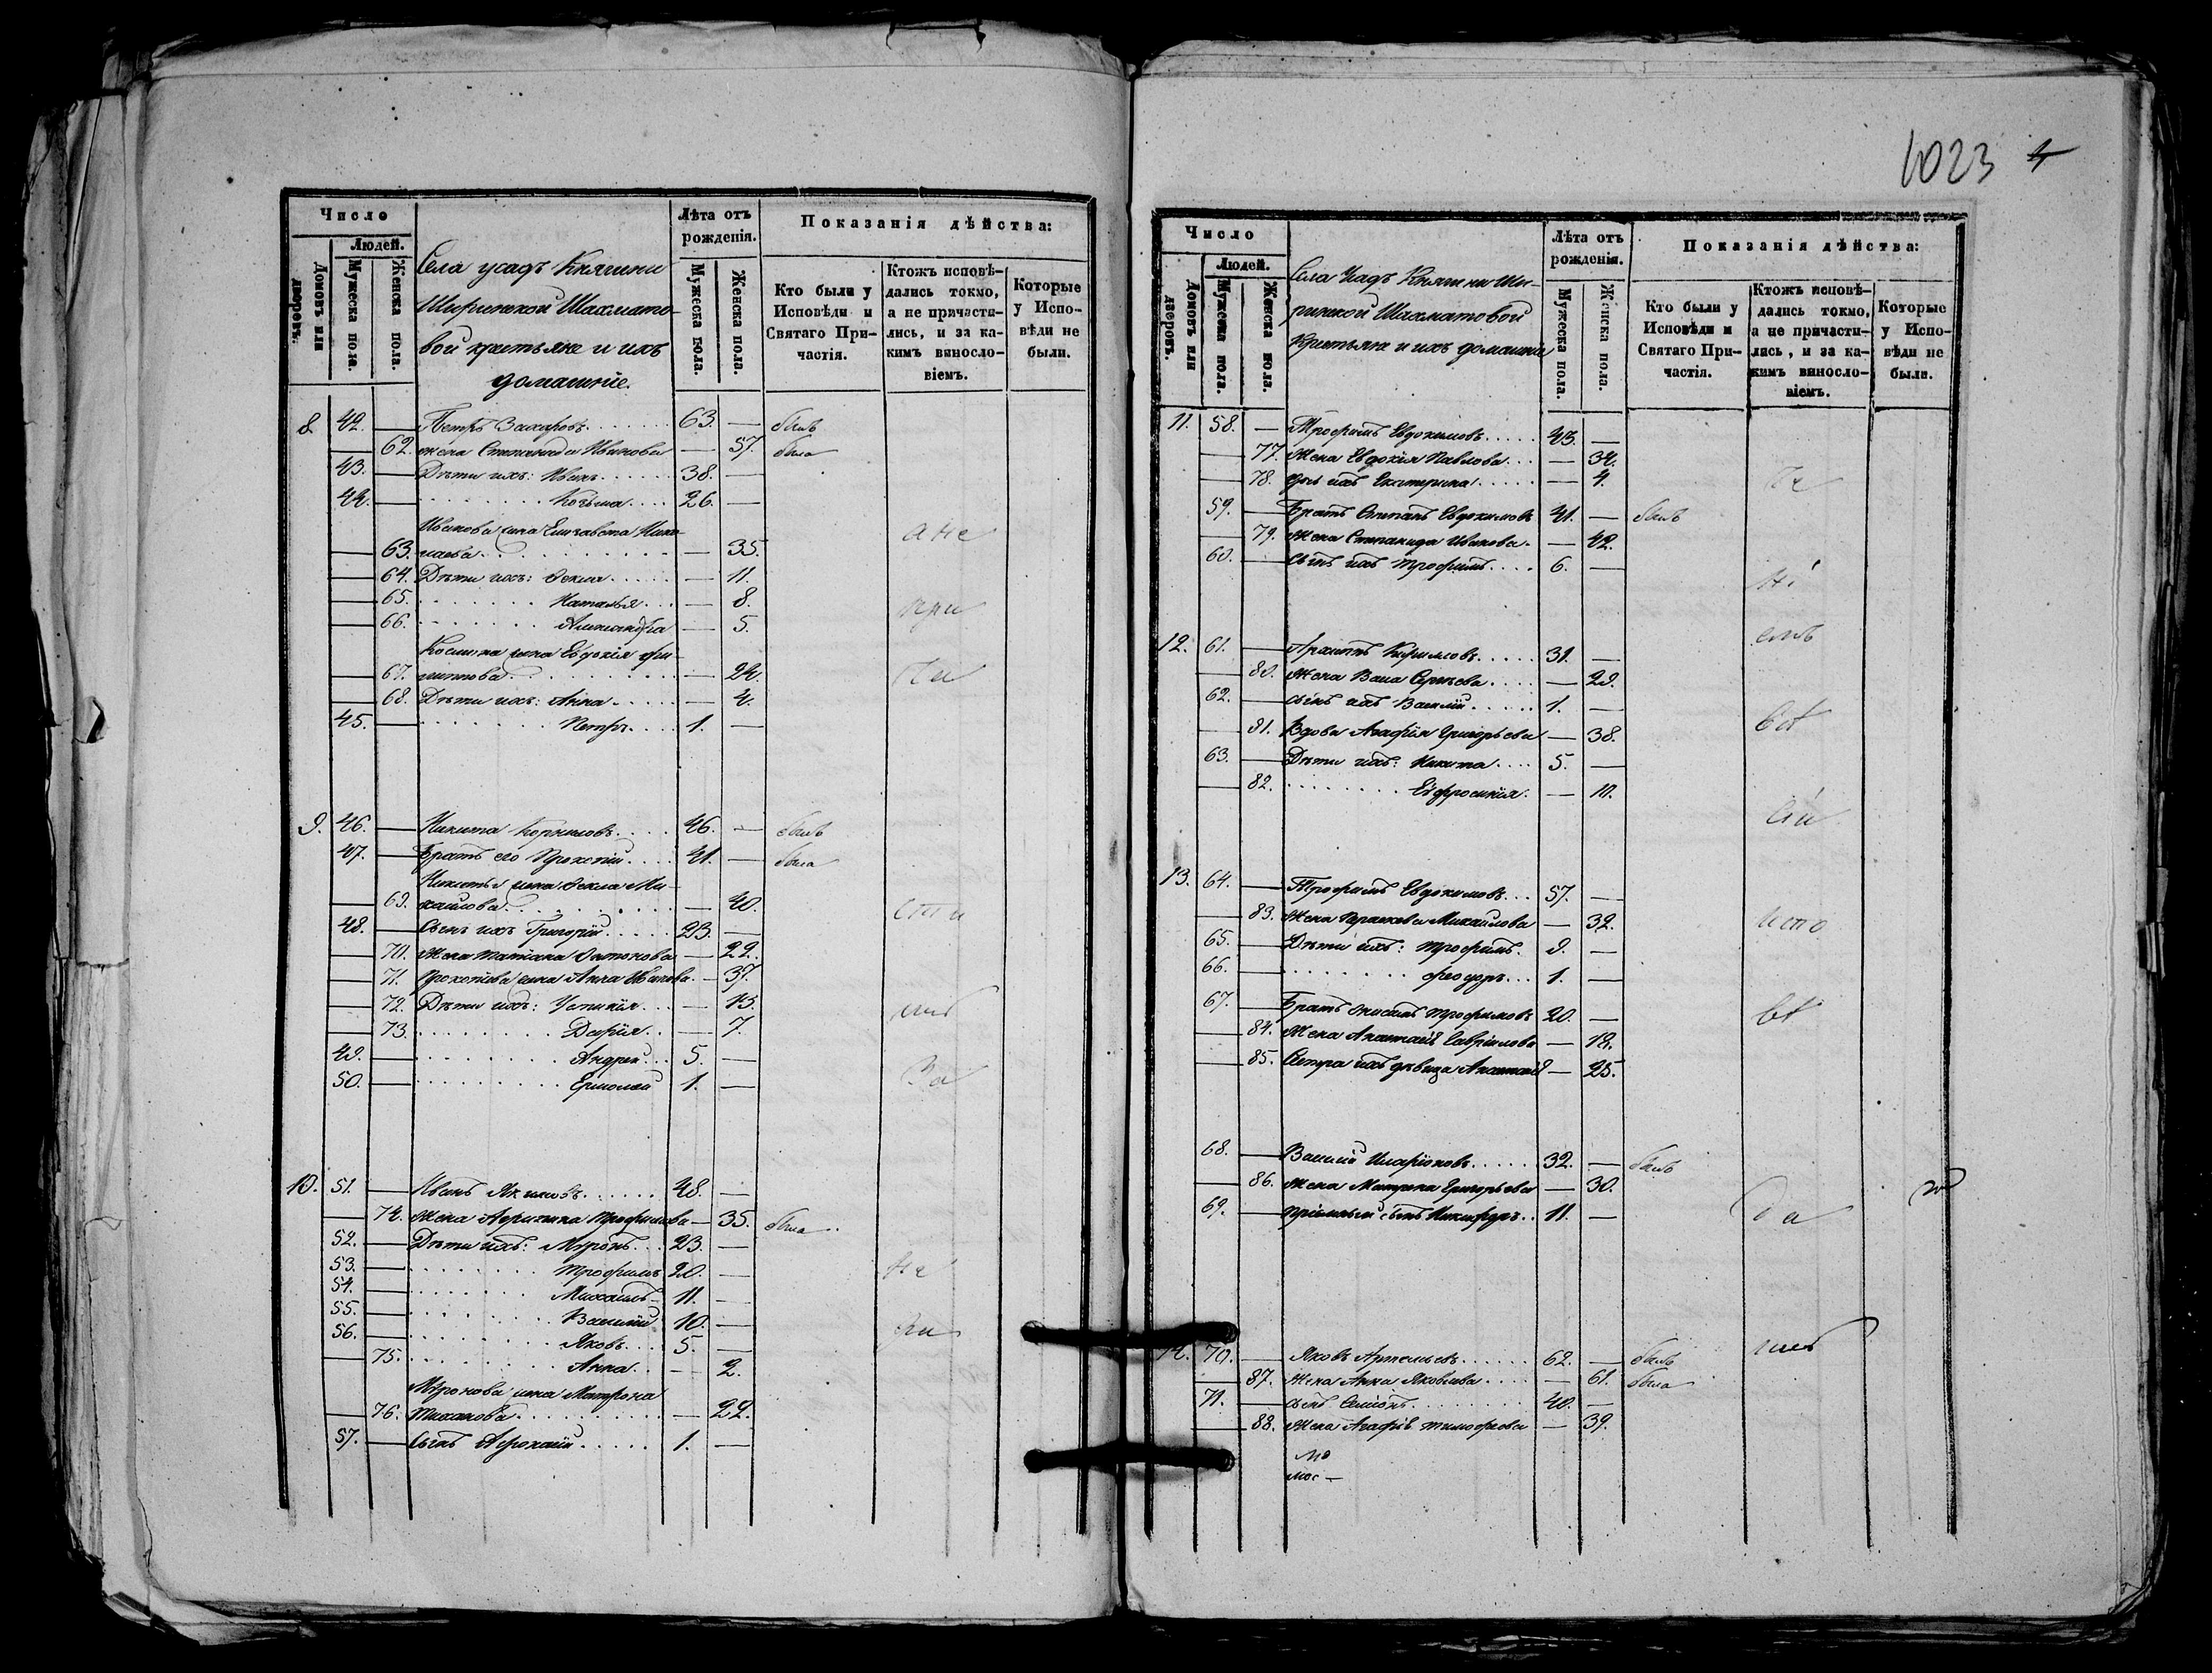 1023 4
Число
Людей.
Домовъ или дворовъ.
Мужеска пола.
Женска пола.
Села усадъ Княгини
Ширинской Шахмато-
вой крестьяне и ихъ
домашніе.
Лѣта отъ рожденія.
Мужеска пола.
Женска пола.
Показанія дѣйства:
Кто были у Исповѣди и Святаго При-частія.
Ктожъ исповѣ-дались токмо, а не причасти-лись, и за ка-кимъ винносло-віемъ.
Которые у Испо-вѣди не были.
8. 42. — Петръ Захаровъ 63. — былъ
— 62. жена Степанида Иванова — 57. была
43. — Дѣти ихъ: Иванъ 38. —
44. — Козьма 26. —
Иванова жена Елизавета Нико-
— 63. лаева — 35.
— 64. Дѣти ихъ: Фекла — 11.
— 65. Наталья — 8.
— 66. Александра — 5.
Косьмина жена Евдокія Фи-
— 67. липпова — 24.
— 68. Дѣти ихъ: Анна — 4.
45. — Петръ 1. —
9. 46. — Никита Корниловъ 46. — былъ
47. — Братъ его Прокопій 41. — была
Никиты жена Фекла Ми-
— 69. хайлова — 40.
48. — Сынъ ихъ Григорій 23. —
— 70. Жена Татіана Антонова — 22.
— 71. Прокопіева жена Анна Иванова — 37.
— 72. Дѣти ихъ: Устинія — 13.
— 73. Дарія — 7.
49. — Андрей 5. —
50. — Ермолай 1. —
10. 51. — Иванъ Акимовъ 48. —
— 74. Жена Афимья Трофимова — 35. была
52. — Дѣти ихъ: Мѵронъ 23. —
53. — Трофимъ 20. —
54. — Михаилъ 11. —
55. — Василій 10. —
56. — Яковъ 5. —
— 75. Анна — 2.
Мѵронова жена Матрона
— 76. Тиханова — 22.
57. — Сынъ 1. —
а не
при
ча
сти
лись
За
не
Число
Людей.
Домовъ или дворовъ.
Мужеска пола.
Женска пола.
Села Усадъ Княгини Ши-
ринской Шахматовой
Крестьяне и ихъ домашніе
Лѣта отъ рожденія.
Мужеска пола.
Женска пола.
Показанія дѣйства:
Кто были у Исповѣди и Святаго При-частія.
Ктожъ исповѣ-дались токмо, а не причасти-лись, и за ка-кимъ винносло-віемъ.
Которые у Испо-вѣди не были.
11. 58. — Трофимъ Евдокимовъ 43. —
— 77. Жена Евдокія Павлова — 34.
— 78. дочь ихъ Екатерина — 4.
59. — Братъ Степанъ Евдокимовъ 41. — былъ
— 79. Жена Степанида Иванова — 42.
60. — Сынъ ихъ Трофимъ 6. —
12. 61. — Архипъ Кириловъ 31. —
— 80. Жена Васа Сергѣева — 29.
62. — сынъ ихъ Василій 1. —
— 81. Вдова Агафія Григорьева — 38.
63. — Дѣти ихъ: Никита 5. —
— 82. Ефросинія — 10.
13. 64. — Трофимъ Евдокимовъ 57. —
— 83. Жена Прасковья Михайлова — 32.
65. — Дѣти ихъ: Трофимъ 9. —
66. — Феодоръ 1. —
67. — Братъ Трофимовъ 20. —
— 84. Жена Анастасія Гавріилова — 19.
— 85. Сестра ихъ дѣвица Анастасія — 25.
68. — Василій Иларіоновъ 32. — былъ
— 86. Жена Матрена Григорьева — 30.
69. — Пріемный сынъ Никифоръ 11. —
14. 70. — Яковъ Артемьевъ 62. — былъ
— 87. Жена Анна Яковлева — 61. была
71. — сынъ Семіонъ 40. —
— 88. Жена Агафія Тимофеева — 39.
испо
вѣ
да
лись